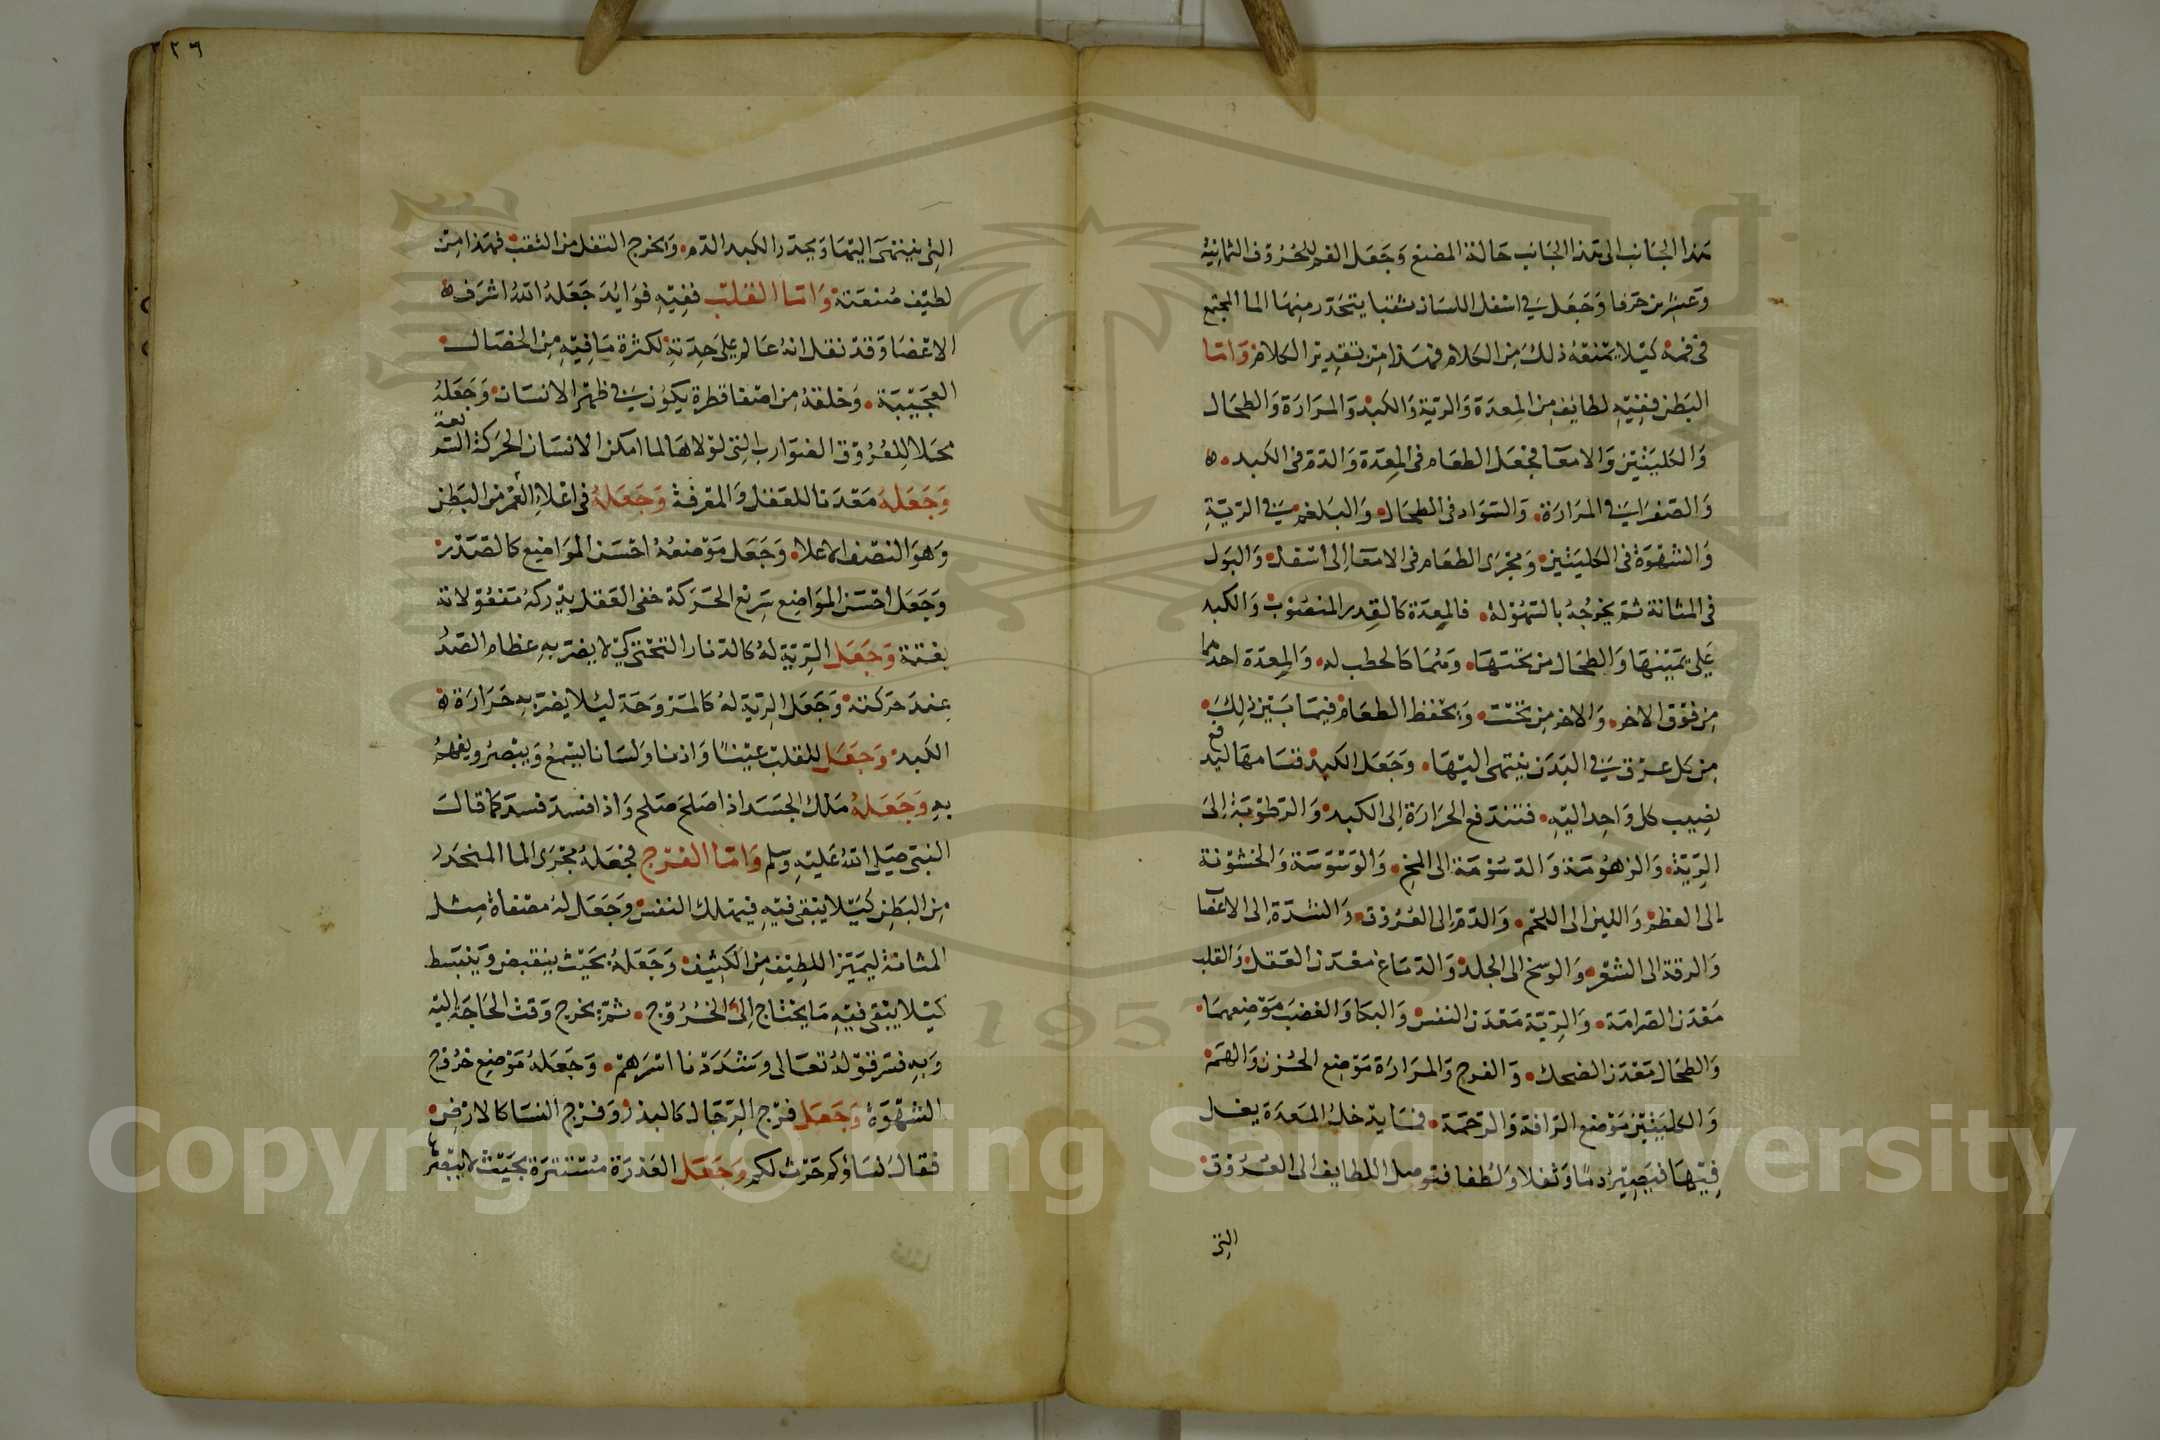 هذا الجانب الى هذا الجانب حالة المضغ وَجَعَل الفم للحُرُوف الثمانِيَة
وَعشرين حَرفا وَجَعَل في اسْفل اللسَان ثقبا يتحَدّر مِنهَا الما المجتمع
في فمهْ كيْلا يمْنعهُ ذلكَ مِن الكلام فهَذا مِن تقدِير الكلام وَامّا
البَطن ففيْهِ لطايف مِن المِعدَة وَالريَة وَالكبدْ وَالمرَارَة وَالطحَال
وَالكليَتيْن وَالامعَا فجْعَل الطعَام في المِعدَة وَالدّم في الكبد ه
وَالصّفرا في المرَارَة وَالسّوَاد في الطحَال وَالبَلغم في الريَّةِ
وَالشهْوَة في الكليَتيْن وَمجْرَى الطعَام في الامعَا اِلى اسْفل وَالبَول
في المثانة ثمّ يخرُجُهُ بالسّهُولهْ فالمِعدَة كالقِدرِ المنصُوبْ وَالكبد
عَلى يمَيْنهَا وَالطحَال مِن تحَتهَا وَهُمَا كالحطب له وَالمِعدَة احدهما
مِن فوْق الاخر وَالاخر مِن تحْت وَيحْفظ الطعَامْ فِيمَا بَيْن ذلِكَ
مِن كل عرْق في البَدَن ينتهى اليْهَا وجَعَل الكبدْ قسَامهَا ليدفع
نصِيب كل وَاحِد اليْهِ فتندَفع الحرَارَة اِلى الكبد وَالرّطوْبَة اِلىَ
الرِّيَّة وَالزهُومَة وَالدسُوْمَة الى المخ وَالوَسْوَسَة وَالخشوْنة
اِلى العظمْ وَاللين اى اللحْم وَالدّم اِلى العُرُوْق وَالشدّة الى الاعضا
وَالرقة الى الشعْر وَالوسخ الى الجلد وَالدمَاغ معْدَن العَقل وَالقلب
مَعْدَن الصّرامَة وَالرِيّة مَعْدَن النفسْ وَالبكا وَالغضَب مَوْضِعِهمَا
وَالطحَال مَعْدَن الضحك وَالفرح وَالمَرَارَة مَوْضِع الحُزن وَالهَمْ
وَالكليَتيْن مَوْضع الرّافة وَالرّحمَة فمَا يدْخلُ المَعدَة يغلى
فِيْهَا فيَصِيْر دمًا وَثفلا وَلُطفا فتوصل اللطايف الى العُرُوق
التى
٣٢٦
التى ينتهَى اليْهَا وَيحدّر الكبد الدّم وَيخرج الثفل من الثقبْ فهَذا مِنْ
لطيْف صُنعَتهْ وَامّا القلب ففيْهِ فوَايُدَ جَعَلهُ اللهُ اشرَف ه
الاعْضا وَقدْ نقل انهُ عَالم على حِدَتِهْ لكثرة مَا فيْهِ مِن الخصَال
العَجَيْبَة وَخلقهُ مِن اصْفا قطرة يكوُن في ظهْر الانسَان وَجَعَلهُ
محَلا لِلعُرُوْق الضوَارِب التى لوْلاهَا لما امكن الانسَان الحرَكة التسعة
وَجَعَلهُ مَعْدَنا للعَقل وَالمَعْرفة وَجَعَلهُ في اعْلا العُمْر من البَطن
وَهوَ النصْف الاعلا وَجَعَل مَوْضعهُ احْسَن الموَاضِع كالصّدْر
وَجَعَل احْسَن الموَاضِع سَريْع الحَرَكة خفى العَقل يدْركهُ مَعقوْلاتهُ
بغتة وَجَعَل الرّيَة لهُ كالدّثار التحْتى كىْ لا يضرّ بهِ عظام الصّدْر
عِند حَركتهْ وَجَعَل الرِيَة لهُ كالمَرْوَحَة ليْلا يضرّ بهِ حَرَارَة ه
الكَبد وَجَعَل للقلبْ عيْنًا وَاذنا وَلسَانا ليَسْمعُ وَيبْصرُ ويفهمُ
بهِ وَجَعَلهُ مَلك الجسَد اذا صَلحَ صَلح وَاذا فسدَ فسدَ كما قالَ
النبّى صَلى اللهُ عَليْهِ وَسلم وَامّا الفرْج فجْعَلهُ مجْرَى الما المنحَدر
مِن البَطن كيْلا يبْقى فيْهِ فيهْلك النفسْ وَجَعَل لهُ مصْفاة مِثل
المثانهْ ليمَيّز اللطِيْف مِن الكَثِيْف وَجَعَلهُ بحَيْث ينقبض وَينْبَسط
كيْلا يبْقى فيْهِ مَا يحْتاج اِلىَ الخُرُوْج ثمّ يخرج وَقتْ الحَاجَة اِليْه
وَبهِ فسَر قوْلهُ تعَالى وَشدَدْنا اسْرَهمْ وَجَعَلهُ مَوْضِع خرُوج
الشهْوَة وَجَعَل فرْج الرّجَال كالبذرْ وَفرْج النسَا كالارْض
فقالَ نسَاؤكم حَرْث لكم وَجَعَل العَذرَة مُسْتترَة بحَيْث لا يبْصرها